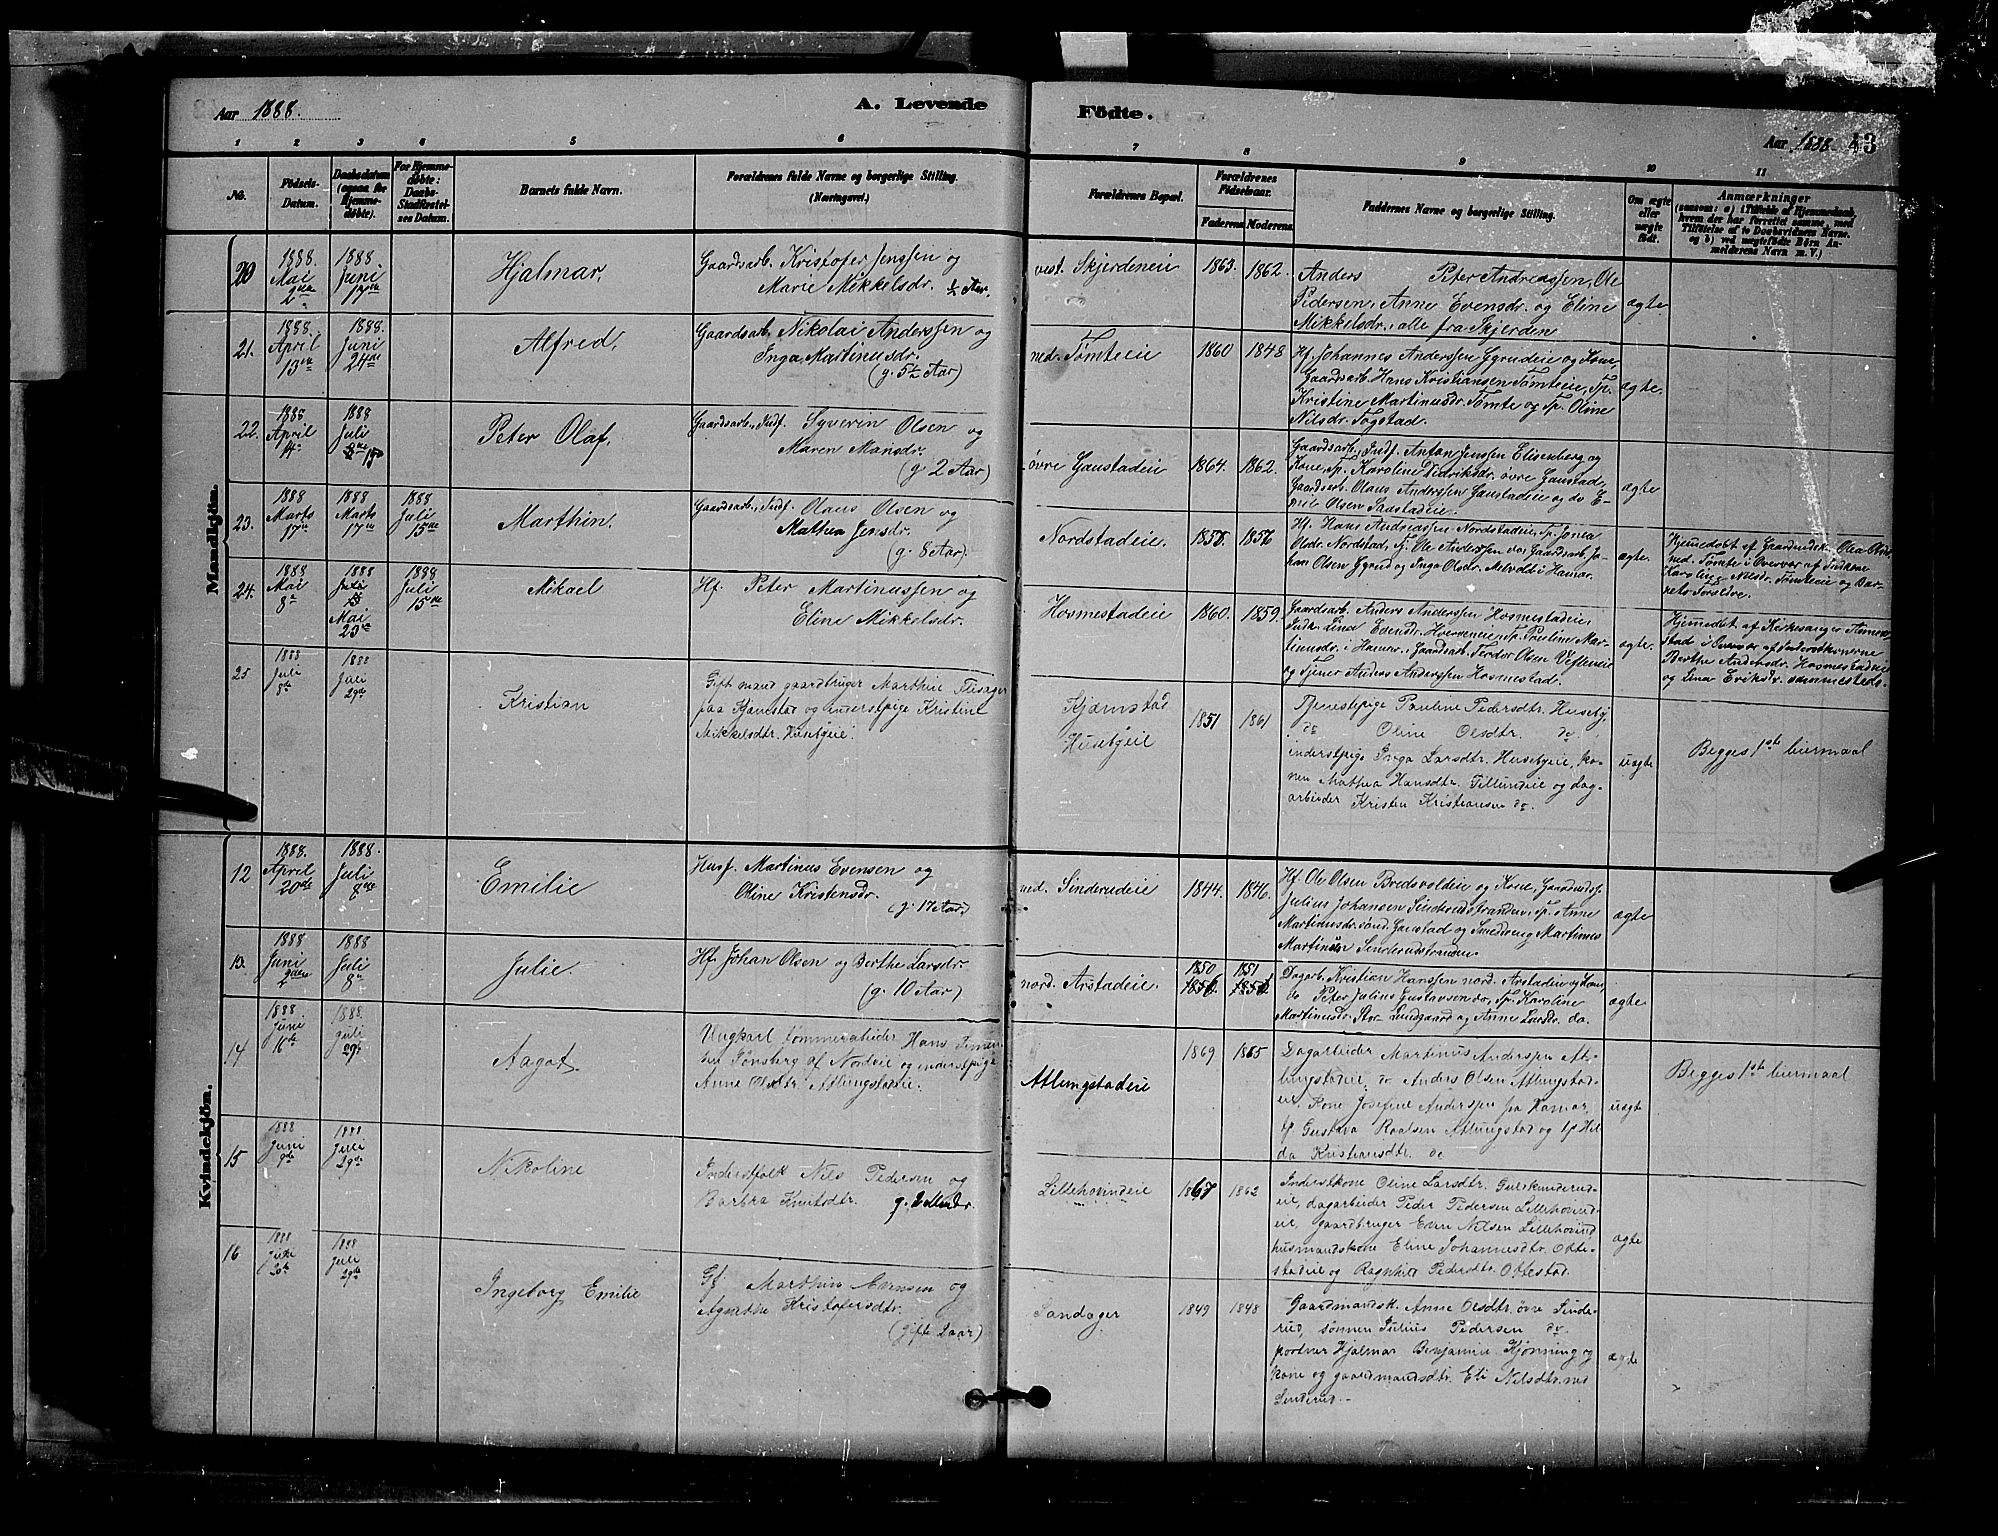 Aar 1888.
A. Levende
Födte.
Aar 1888. 43
1 2 3 4 5 6
7 8 9 10 11
No.
Födsels-
Datum.
Daabsdatum
(ogsaa for
Hjemme-
døbte).
For Hjemme-
døbte:
Daabs-
Stadfæstel-
ses Datum.
Barnets fulde Navn.
Forældrenes fulde Navne og borgerlige Stilling.
(Næringsvei.)
Forældrenes Bopæl.
Forældrenes
Födselsaar.
Faderens. Moderens.
Faddernes Navne og borgerlige Stilling.
Om ægte
eller
uægte
født.
Anmærkninger
Mandkjön.
20
1888.
Mai
2den
1888
Juni
17de
Hjalmar.
Gaardsarb. Kristofer Jenssen og
Marie Mikkelsdr. ½ Aar.
vest. Skjerdeneie
1863. 1862.
Anders Peter Andreassen, Ole
Pedersen, Anne Evensdr. og Eline
Mikkelsdr., alle fra Skjerden
ægte
21.
1888.
April
13de
1888.
Juni
24de
Alfred,
Gaardsarb. Nikolai Anderssen og
Inga Martinusdr.
(g. 5½ Aar)
ned. Tømteeie
1860 1848
Hf. Johannes Anderssen Ygrudeie og Kone,
Gaardsarb. Hans Kristiansen Tømteeie, Tp.
Kristine Martinusdr. Tomte og Tp. Oline
Nilsdr. Togstad.
ægte.
22.
1888
April
14de
1888
Juli
15
Peter Olaf,
Gaardsarb., Indf. Syverin Olsen og
Maren Mansdr.
(g. 2 Aar)
øvre Gaustadeie
1864. 1862.
Gaardsarb., Indf. Anton Jenssen Elisenberg og
Kone, Tp. Karoline Didriksdr. øvre Gaustad,
Gaardsarb. Olaus Anderssen Gaustadeie og do E-
mil Olsen
ægte
23.
1888
Marts
17de
1888
Marts
17de
1888
Juli
15de
Marthin.
Gaardsarb., Indf. Olaus Olsen og
Mathea Jensdr.
(g. 8 Aar).
Nordstadeie.
1856
Hf. Hans Andreassen Nordstadeie, Tp. Jonea
Olsdr. Nordstad, Tj. Ole Anderssen do. Gaardsarb. Jo-
han Olsen Ygrud og Inga Olsdr. i Hamar.
ægte.
Hjemedøbt af Olea Olsdr.
ned. Tømte i Overvær af
Karoline Nilsdr. Tømteeie og Bar-
nets Forældre.
24.
1888
Mai
8de
1888
Mai
23de
1888
Juli
15de
Mikael
Hf. Peter Martinussen og
Eline Mikkelsdr.
Hosmestadeie
1860. 1859.
Gaardsarb. Anders Anderssen Hosmestadeie,
Indk. Lina Evensdr. Tp. Pauline Mar-
tinusdr. i Hamar. Gaardsarb. Olsen
og Tjener Anders Anderssen Hosmestad.
ægte.
Hjemedøbt af Kirkesanger
i Overvær af
Berthe Andersdr. Hosmestadeie
og Lina Eriksdr. sammesteds.
25
1888
Juli
8de
1888
Juli
29de
Kristian
Gift mand gaardbruger Marthin
paa Kjæmstad og inderstpige Kristine
Mikkelsdtr. Husebyeie.
Kjæmstad
Husebyeie
1851 1861
Tjenestepige Pauline Pedersdtr. Huseby,
do Oline Olsdtr. do,
inderstpige Inga Larsdtr. Husebyeie, ko-
nen Mathea Hansdtr. Tillundeie og dag-
arbeider Kristen Kristiansen do.
uægte
Begges 1ste leiermaal
Kvindekjön.
12
1888.
April
20de
1888.
Juli
8de
Emilie
Husf. Martinus Evensen og
Oline Kristensdr.
(g. 17 Aar.)
ned. Sinderudeie
1844. 1846.
Hf. Ole Olsen Bredsvoldeie og Kone,
Julius Johansen Sinderudstranden, Tp. Anne
Martinusdr. sønd. Gaustad og Martinus
Sinderudstranden.
ægte
13.
1888
Juni
1888
Juli
8de
Julie.
Hf. Johan Olsen og Berthe Larsdr.
(g. 10 Aar)
nord. Arstadeie.
1850 1851
Dagarb. Kristian Hanssen nord. Arstadeie og Kone,
do Peter Julius Gustavsen do, Tp. Karoline
Martinusdr. Stor Lundgaard og Anne Larsdr. do.
ægte
14
1888
Juni
16de
1888.
Juli
29de
Aagot.
Ungkarl tømmerarbeider Hans
Tønsberg af Nordvie og inderstpige
Anne Olsdtr. Atlungstadeie.
Atlungstadeie
1869 1865
Dagarbeider Martinus Anderssen At-
lungstadeie, do Anders Olsen Atlungstad-
eie, Kone Josefine Anderssen fra Hamar,
tj. Gustava Roalsen Atlungstad og tp Hil-
da Kristiansdtr. do
uægte
Begges 1ste leiermaal
15
1888
Juni
9de
1888
Juli
29de
Nikoline
Inderstfolk Nils Pedersen og
Barbra Knutsdtr.
Lillehovindeie
1862
Inderstkone Oline Larsdtr.
eie, dagarbeider Peder Pedersen Lillehovind-
eie, gaardbruger Even Nilsen Lillehovind
husmandskone Eline Johannesdtr. Otte-
stadeie og Ragnhild Pedersdtr. Ottestad.
ægte
16
1888
20de
1888
Juli
29de
Ingeborg Emilie
Gf. Marthin Evensen og
Agnethe Kristofersdtr.
(gifte 2 aar)
Sandager
1849 1848
Gaardmandsk. Anne Olsdtr. øvre Sinde-
rud, sønnen Julius Pedersen do.
portner Hjalmar Benjamin Kjønning og
kone og gaardmandsdtr. Eli Nilsdtr. ned
Sinderud.
ægte